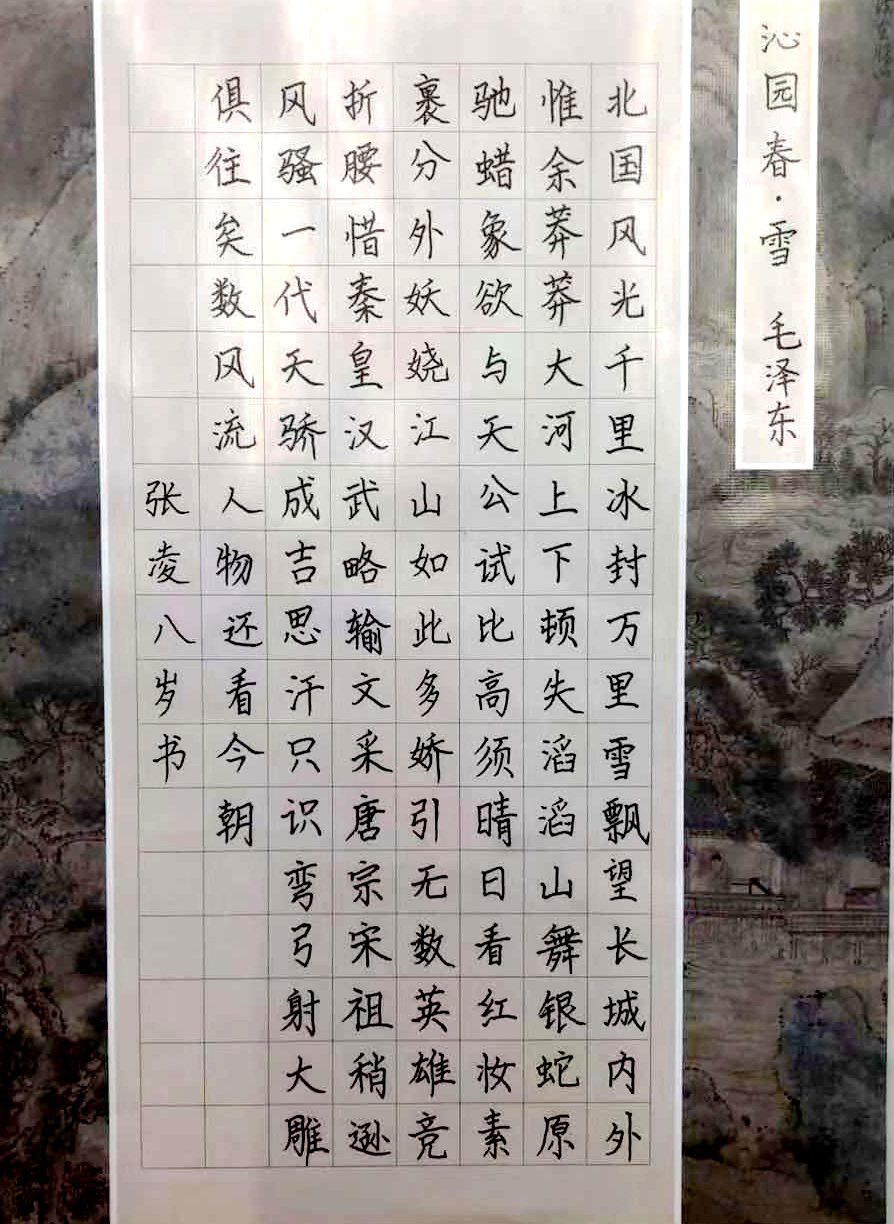 沁园春·雪 毛泽东
北国风光千里冰封万里雪飘望长城内外
惟余莽莽大河上下顿失滔滔山舞银蛇原
驰蜡象欲与天公试比高须晴日看红妆素
裹分外妖娆江山如此多娇引无数英雄竞
折腰惜秦皇汉武略输文采唐宗宋祖稍逊
风骚一代天骄成吉思汗只识弯弓射大雕
俱往矣数风流人物还看今朝
张凌八岁书